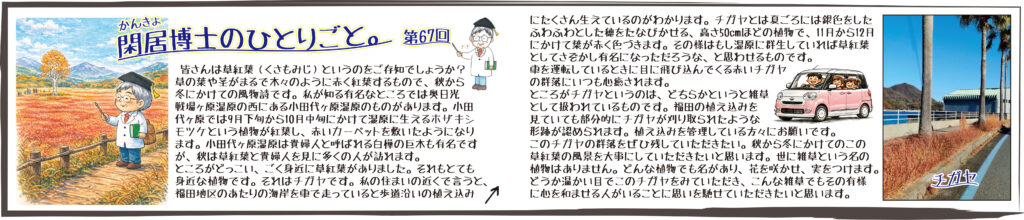 かんきょ
閑居博士のひとりごと。 第67回
皆さんは草紅葉（くさもみじ）というのをご存知でしょうか？
草の葉や茎がまるで木々のように赤く紅葉するもので、秋から
冬にかけての風物詩です。私が知る有名なところでは奥日光
戦場ヶ原湿原の西にある小田代ヶ原湿原のものがあります。小田
代ヶ原では9月下旬から10月中旬にかけて湿原に生えるホザキシ
モツケという植物が紅葉し、赤いカーペットを敷いたようになり
ます。小田代ヶ原湿原は貴婦人と呼ばれる白樺の巨木も有名です
が、秋は草紅葉と貴婦人を見に多くの人が訪れます。
ところがどっこい、ごく身近に草紅葉がありました。それもとても
身近な植物です。それはチガヤです。私の住まいの近くで言うと、
福田地区のあたりの海岸を車で走っていると歩道沿いの植え込み
にたくさん生えているのがわかります。チガヤとは夏ごろには銀色をした
ふわふわとした穂をたなびかせる、高さ50cmほどの植物で、11月から12月
にかけて葉が赤く色づきます。その様はもし湿原に群生していれば草紅葉
としてさぞかし有名になっただろうな、と思わせるものです。
車を運転しているときに目に飛び込んでくる赤いチガヤ
の群落にいつも心癒されます。
ところがチガヤというのは、どちらかというと雑草
として扱われているものです。福田の植え込みを
見ていても部分的にチガヤが刈り取られたような
形跡が認められます。植え込みを管理している方々にお願いです。
このチガヤの群落をぜひ残していただきたい。秋から冬にかけてのこの
草紅葉の風景を大事にしていただきたいと思います。世に雑草という名の
植物はありません。どんな植物でも名があり、花を咲かせ、実をつけます。
どうか温かい目でこのチガヤをみていただき、こんな雑草でもその有様
に心を和ませる人がいることに思いを馳せていただきたいと思います。
チガヤ